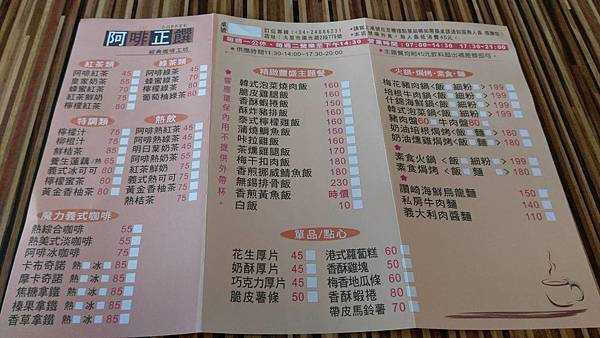 阿啡正饌
經典咖啡工坊
紅茶類
阿啡紅茶 45
皇家奶茶 55
蜂蜜紅茶 55
紅茶鮮奶 75
檸檬紅茶 80
綠茶類
阿啡綠茶 45
蜂蜜綠茶
檸檬綠茶
葡萄柚綠茶 80
特調類
檸檬汁 75
柳橙汁 75
鮮桔茶
養生蓮藕/熱 65
義式冰可可 80
檸檬蜜茶 80
黃金香柚茶 80
熱飲
阿啡熱紅茶 45
阿啡熱綠茶 45
明日葉奶茶 45
阿啡熱奶茶 55
紅茶鮮奶 75
義式熱可可 75
黃金香柚茶 70
熱桔茶 75
魔力義式咖啡
熱綜合咖啡 55
熱美式淡咖啡 55
阿啡冰咖啡 75
卡布奇諾 熱 冰 85
摩卡奇諾 熱 冰 85
焦糖拿鐵 熱 冰 85
榛果拿鐵 熱 冰 85
香草拿鐵 熱 冰 85
桌號
訂位專線:(04)24866231
店址:大里市國光路2段779號
每週一公休、每週二營業至下午14:30
營業時間:07:00-14:30 17:30-21:00
★供應時間11:30-14:00~17:30-20:00
精緻豐盛主題餐
響應環保內用不提供外帶杯
韓式泡菜燒肉飯 160
脆皮雞腿飯 160
香酥蝦捲飯 150
酥炸豬排飯 160
泰式檸檬雞飯 160
蒲燒鯛魚飯 150
咔拉雞飯 150
茶燻雞腿飯 170
梅干扣肉飯 180
香煎挪威鯖魚飯 180
無錫排骨飯 230
香煎黃魚飯 時價
白飯 10
單品/點心
花生厚片 45
奶酥厚片 45
巧克力厚片 45
脆皮薯條 50
港式蘿蔔糕 60
香酥雞塊 50
梅香地瓜條 60
香酥蝦捲 80
帶皮馬鈴薯 70
火鍋·焗烤·素食·麵
梅花豬肉鍋<飯 細粉 > 199
培根牛奶鍋<飯 細粉 > 199
什錦海鮮鍋<飯 細粉 > 199
韓式泡菜鍋<飯 細粉 > 199
豬肉盤60 牛肉盤80
奶油培根焗烤<飯 麵 > 180
奶油燻雞焗烤<飯 麵 > 180
素食火鍋 <飯 細粉 > 199
素食焗烤 <飯 麵 > 180
讚岐海鮮烏龍麵 150
私房牛肉麵 140
義大利肉醬麵 110